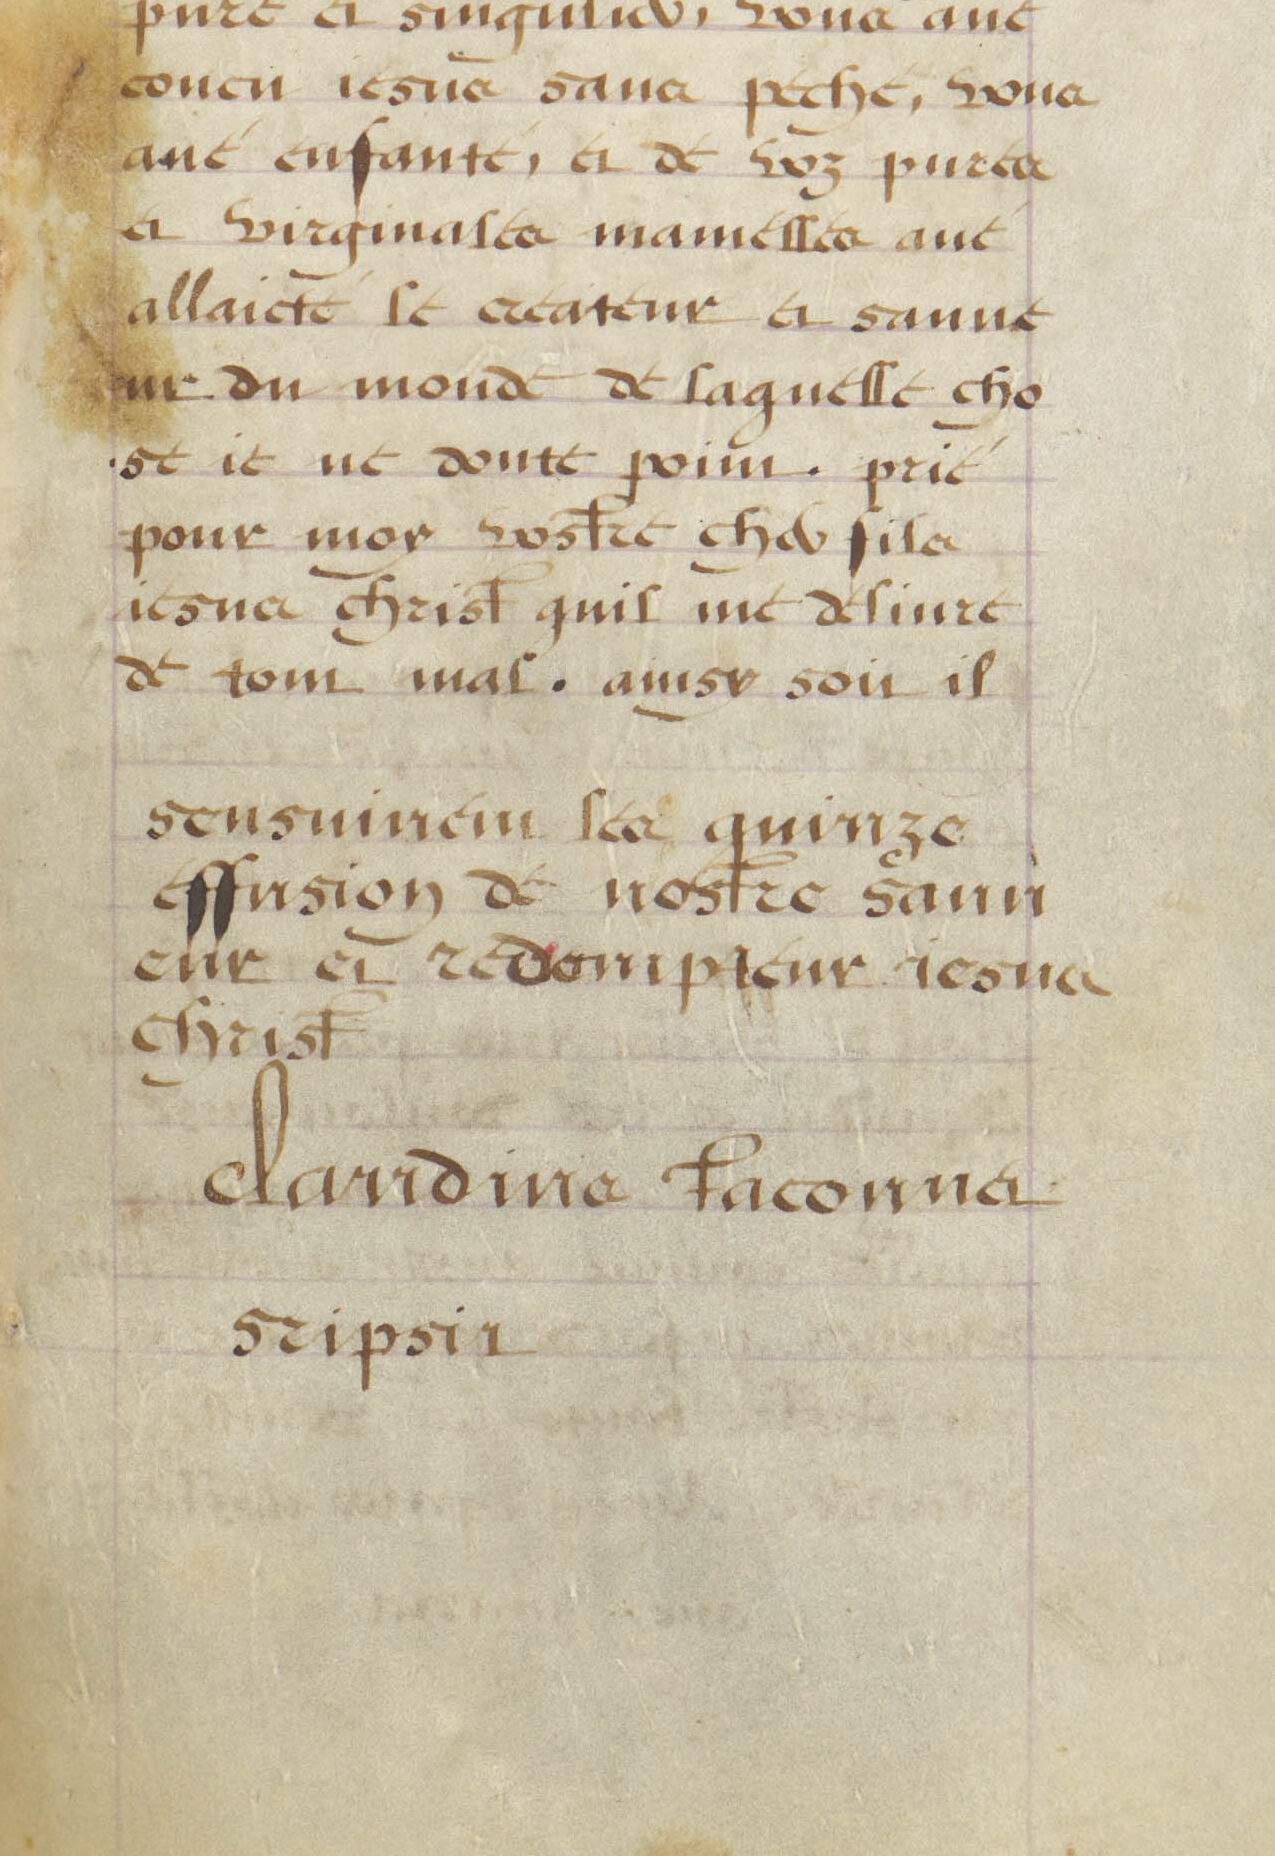 pure et singulier, vous aué
conceu iesus sans peché, vous
aué enfanté, et de voz pures
et virginales mamelles aué
allaicté le createur et sauue
ur du monde de laquelle cho
se ie ne doute point. prié
pour moy vostre cher fils
iesus christ quil me deliure
de tout mal. ainsy soit il
sensuiuent les quinze
effusion de nostre sauu
eur et redempteur iesus
christ
claudine taconnet
scripsit